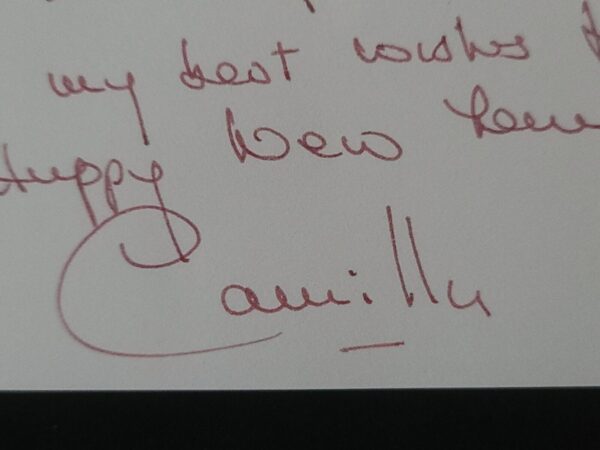 my best wishes
Happy New
Camilla